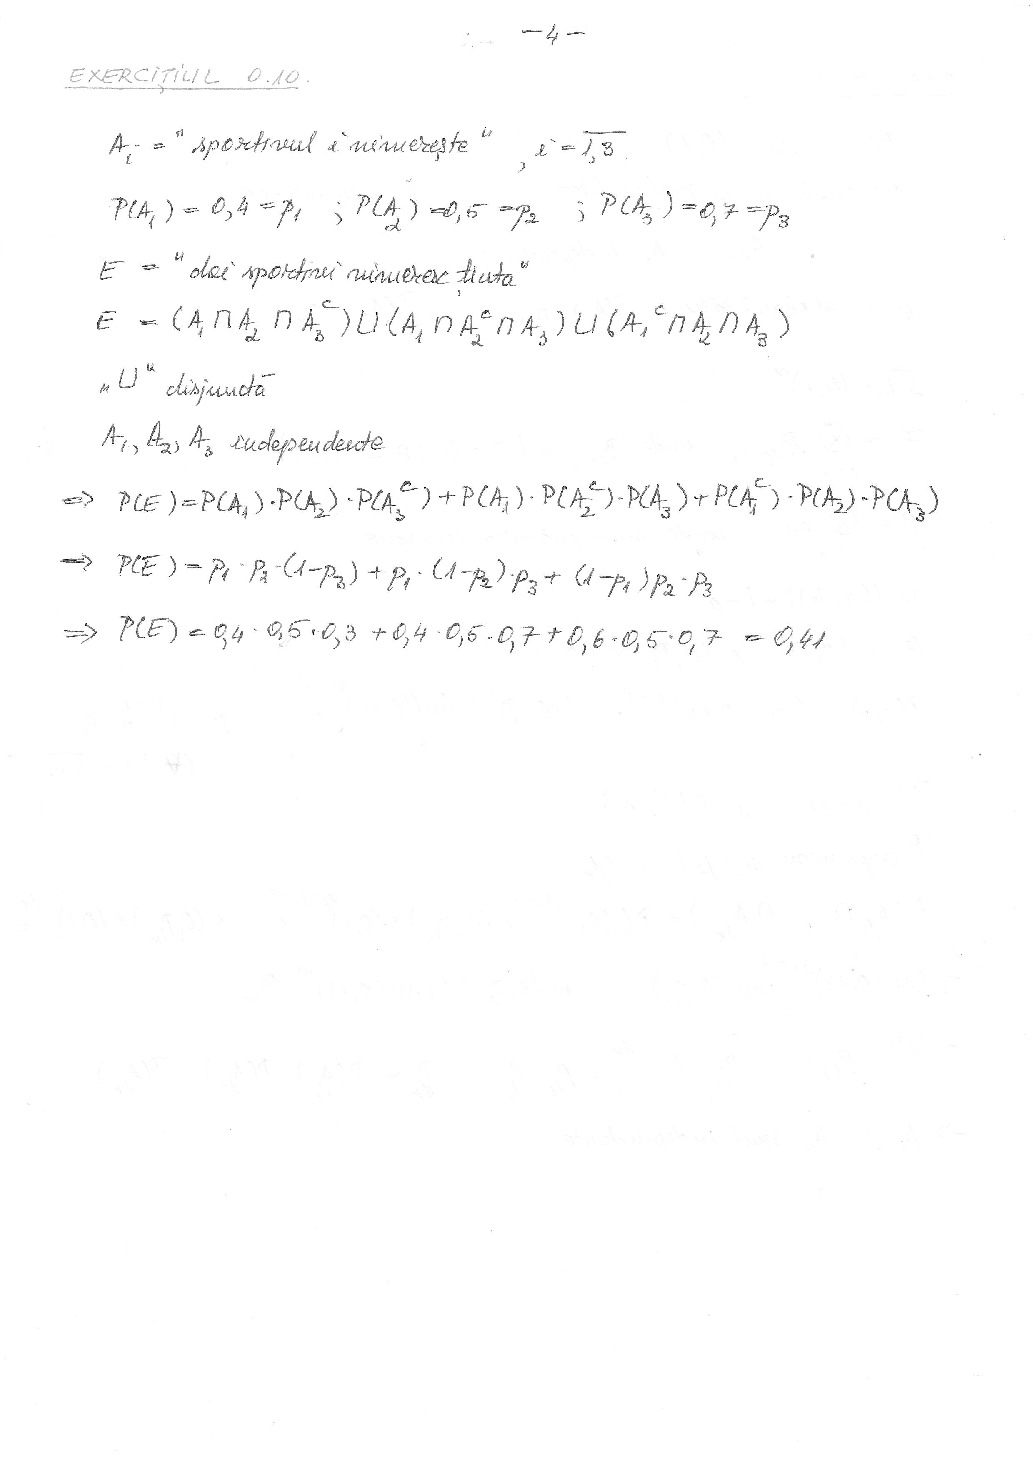 -4-
EXERCIȚIUL 0.10.
A_i = "sportivul i nimerește" , i = \overline{1,3}
P(A_1) = 0,4 = p_1 ; P(A_2) = 0,5 = p_2 ; P(A_3) = 0,7 = p_3
E = "doi sportivi nimeresc ținta"
E = (A_1 ∩ A_2 ∩ A_3^c) ∪ (A_1 ∩ A_2^c ∩ A_3) ∪ (A_1^c ∩ A_2 ∩ A_3)
„∪" disjunctă
A_1, A_2, A_3 independente
⇒ P(E) = P(A_1) · P(A_2) · P(A_3^c) + P(A_1) · P(A_2^c) · P(A_3) + P(A_1^c) · P(A_2) · P(A_3)
⇒ P(E) = p_1 · p_2 · (1-p_3) + p_1 · (1-p_2) · p_3 + (1-p_1) p_2 · p_3
⇒ P(E) = 0,4 · 0,5 · 0,3 + 0,4 · 0,5 · 0,7 + 0,6 · 0,5 · 0,7 = 0,41